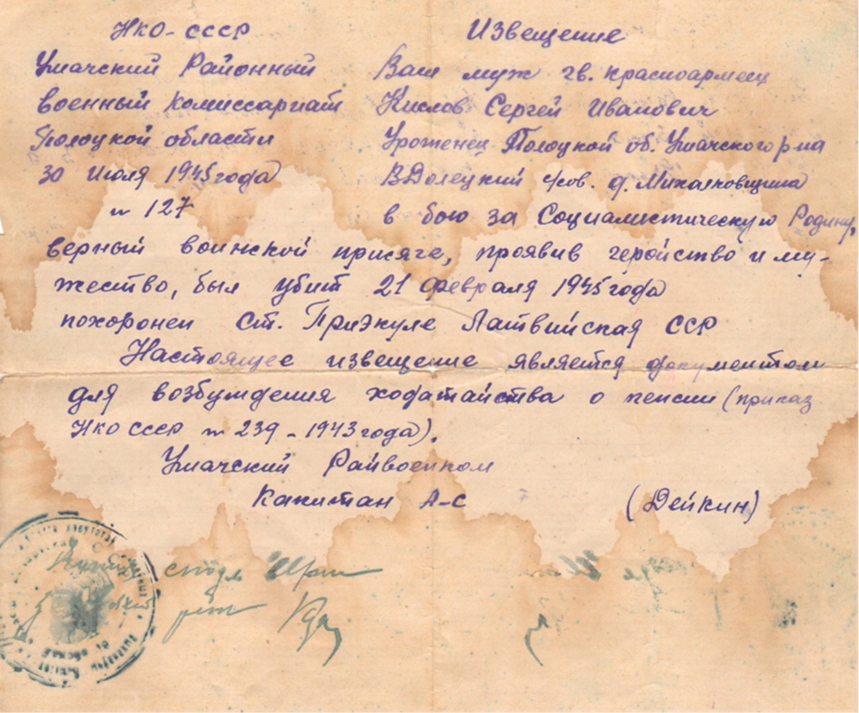 НКО-СССР
Ушачский Районный
военный комиссариат
Полоцкой области
30 июля 1945 года
№ 127
Извещение
Ваш муж гв. красноармеец
Кислов Сергей Иванович
Уроженец Полоцкой об. Ушачского р-на
В Долецкий с/сов. д. Михалковщина
в бою за Социалистическую Родину,
верный воинской присяге, проявив геройство и му-
жество, был убит 21 февраля 1945 года
похоронен ст. Приэкуле Латвийская ССР
Настоящее извещение является документом
для возбуждения ходатайства о пенсии (приказ
НКО СССР № 239-1943 года).
Ушачский Райвоенком
Капитан А-С (Дейкин)